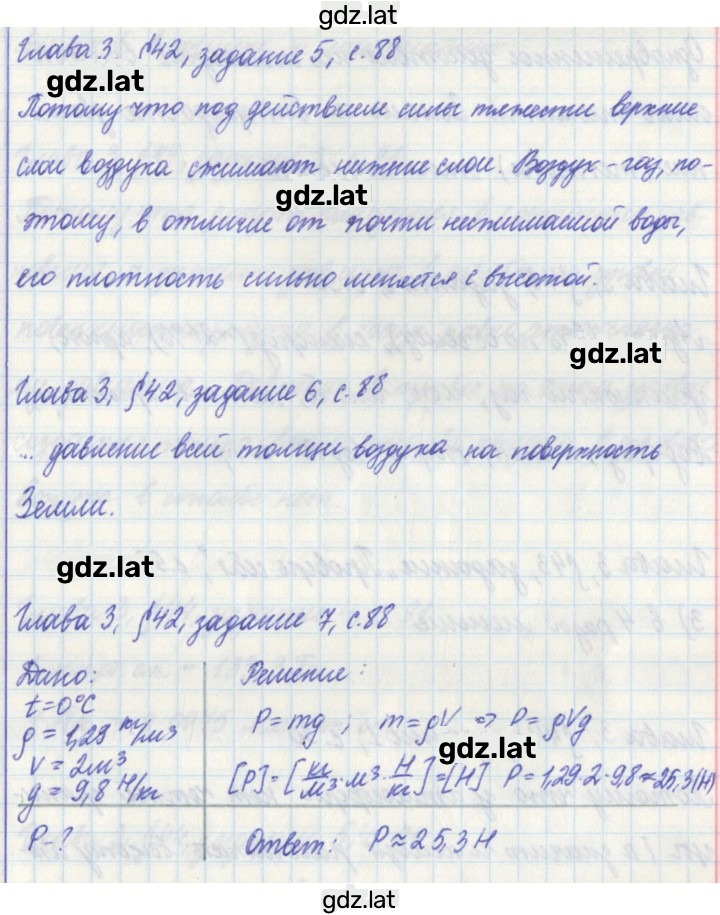 gdz.lat
Глава 3. §42, задание 5, с.88
gdz.lat
Потому что под действием силы тяжести верхние
слои воздуха сжимают нижние слои. Воздух - газ, по-
gdz.lat
этому, в отличие от почти несжимаемой воды,
его плотность сильно меняется с высотой.
gdz.lat
Глава 3, §42, задание 6, с.88
... давление всей толщи воздуха на поверхность
Земли.
gdz.lat
Глава 3, §42, задание 7, с.88
Дано:
t=0°C
ρ = 1,29 кг/м³
V = 2м³
g = 9,8 Н/кг
P-?
Решение:
P = mg, m = ρV => P = ρVg
gdz.lat
[P] = [кг/м³ · м³ · Н/кг] = [Н] P = 1,29·2·9,8≈25,3(Н)
Ответ: P ≈ 25,3 Н
gdz.lat